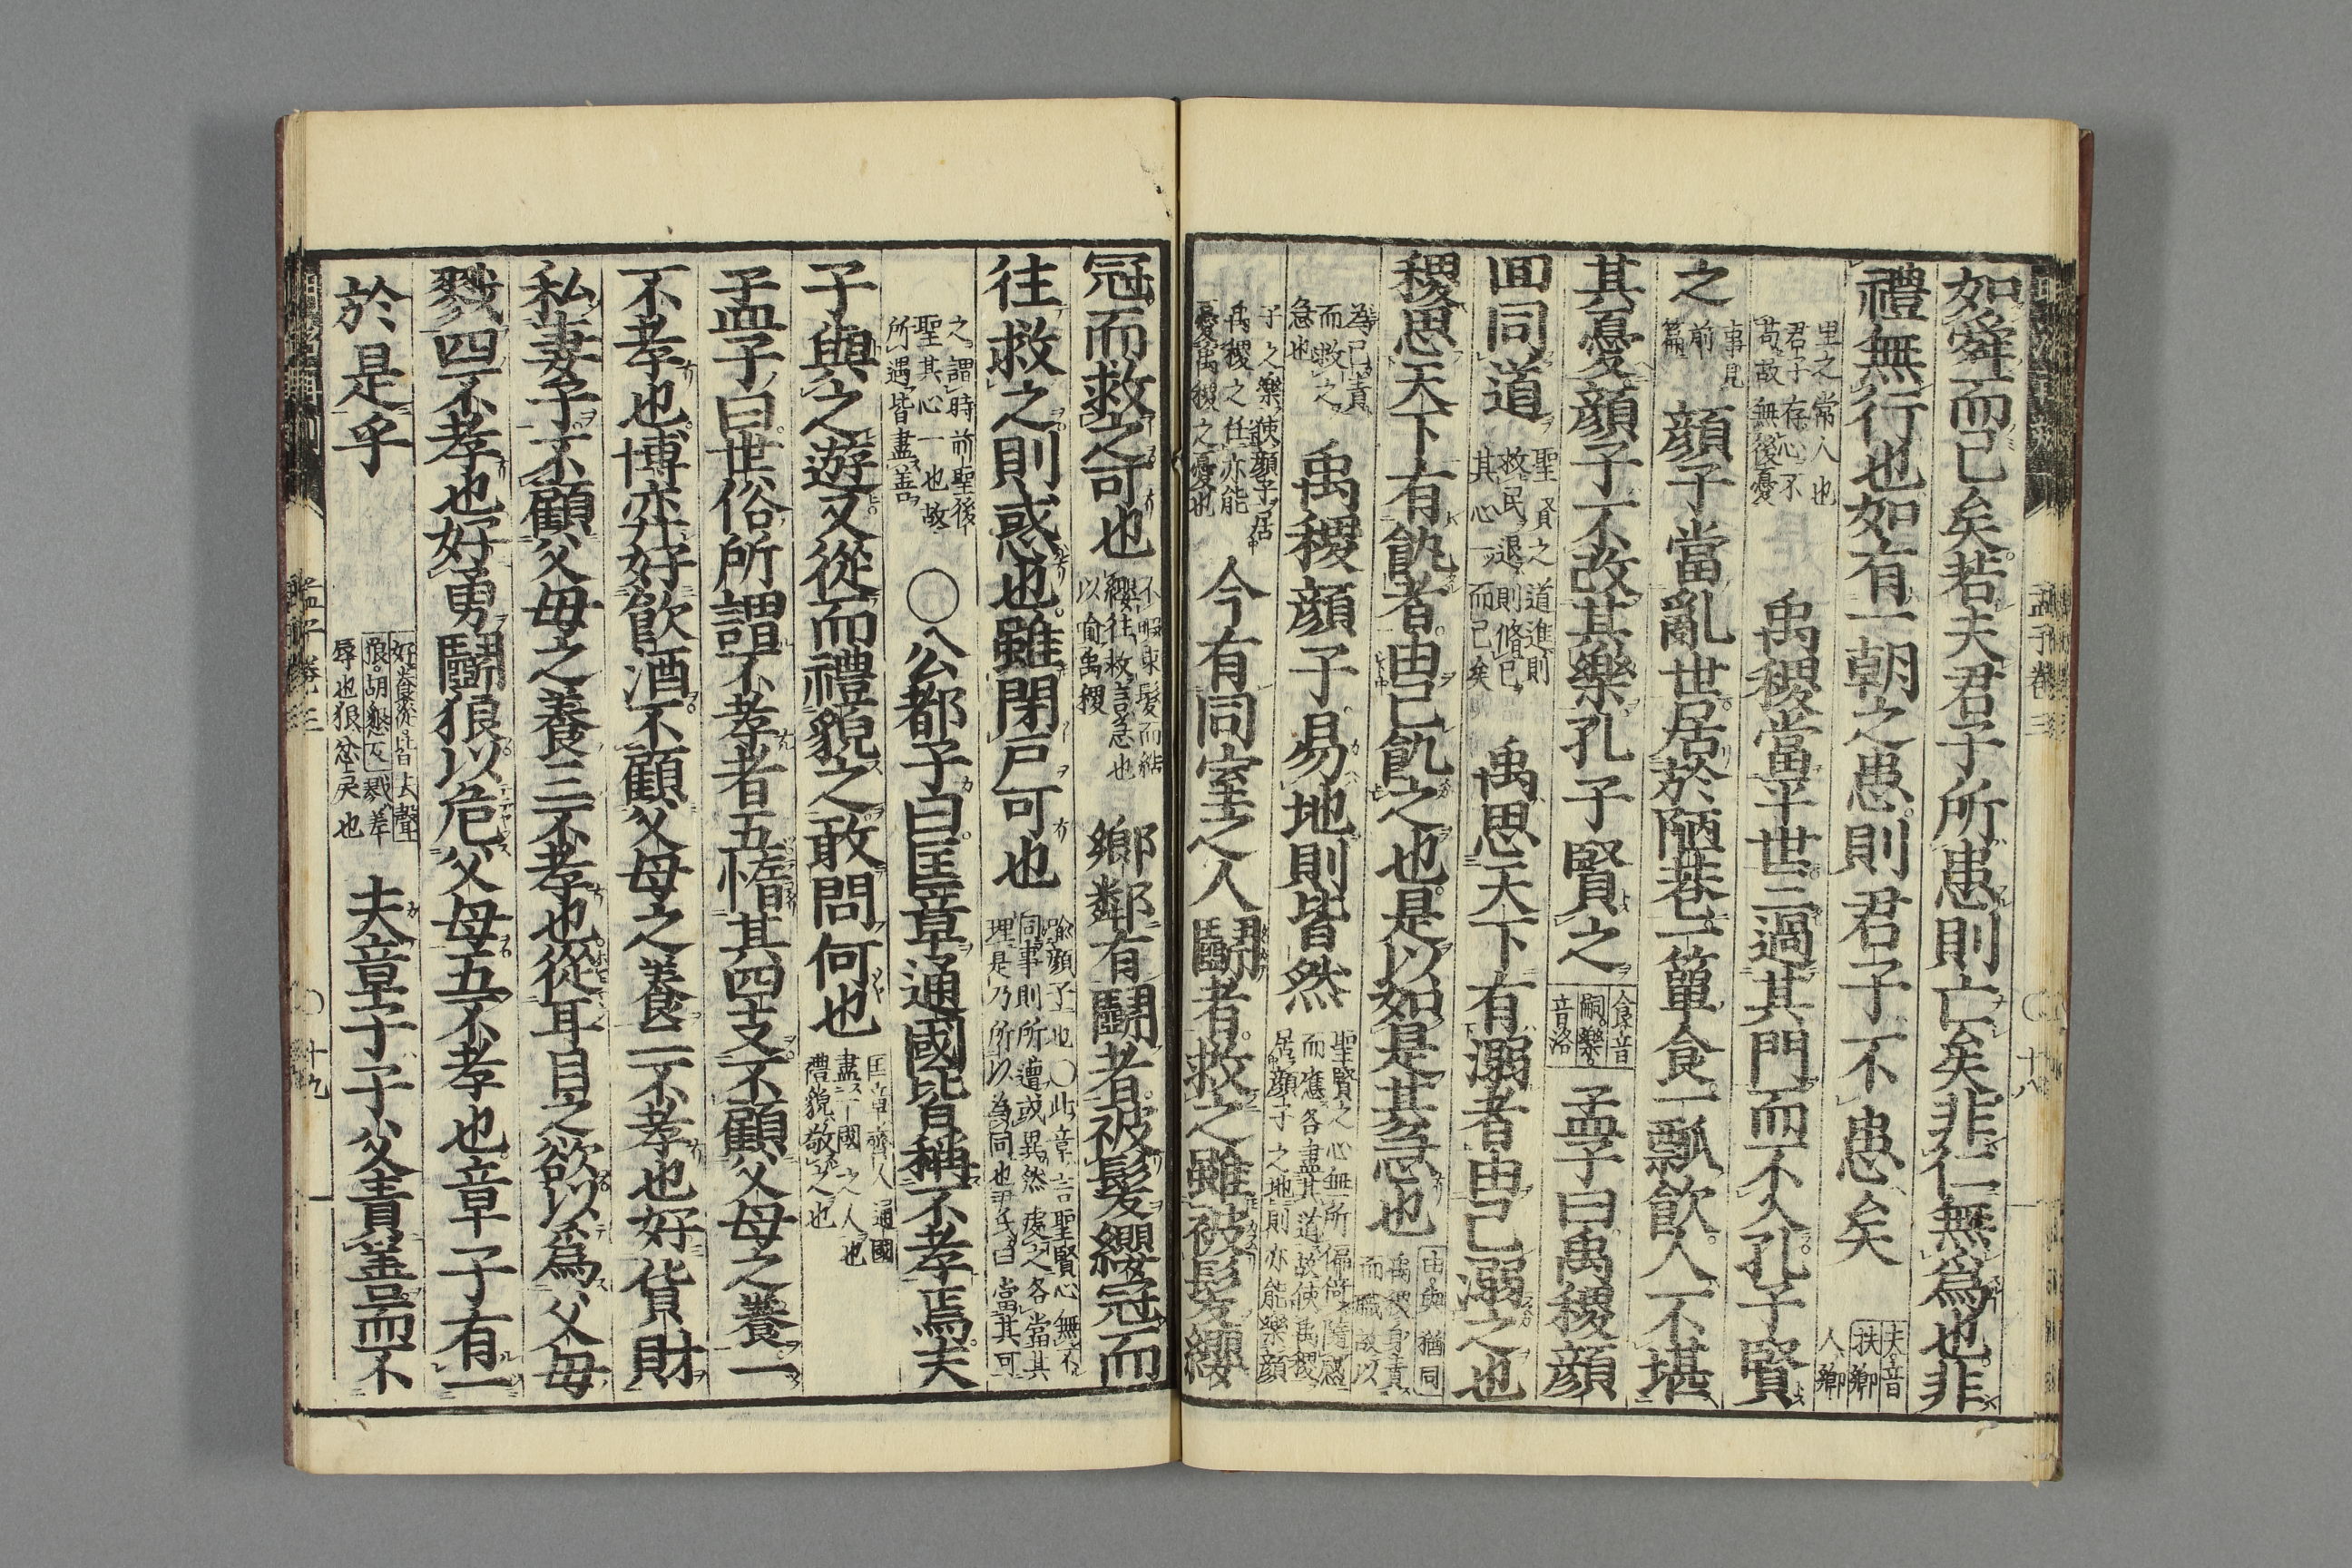 如舜而已矣若夫君子所患則亡矣非仁無爲也非
禮無行也如有一朝之患則君子不患矣
夫音
扶鄉
人鄉
里之常人也
君子存心不
苟故無後憂
禹稷當平世三過其門而不入孔子賢
之
事見
前
篇
顔子當亂世居於陋巷一簞食一瓢飲人不堪
其憂顔子不改其樂孔子賢之
食音
嗣樂
音洛
孟子曰禹稷顔
回同道
聖賢之道進則
救民退則脩已
其心一而已矣
禹思天下有溺者由己溺之也
稷思天下有飢者由己飢之也是以如是其急也
由與猶同
禹稷身責
而職故以
為已責
而救之
急也
禹稷顔子易地則皆然
聖賢之心無所偏倚隨感
而應各盡其道故使禹稷
居顔子之地則亦能樂顔
子之樂使顔子居
禹稷之任亦能
憂禹稷之憂也
今有同室之人鬪者救之雖被髮纓
冠而救之可也
不暇束髮而結
纓往救言急也
以喻禹稷
鄉鄰有鬪者被髮纓冠而
往救之則惑也雖閉戸可也
喻顔子也○此章言聖賢心無不
同事則所遭或異然處之各當其
理是乃所以為同也尹氏曰當其可
之謂時前聖後
聖其心一也故
所遇皆盡善
○公都子曰匡章通國皆稱不孝焉夫
子與之遊又從而禮貌之敢問何也
匡章齊人通國
盡一國之人也
禮貌敬之也
孟子曰世俗所謂不孝者五惰其四支不顧父母之養一
不孝也博弈好飮酒不顧父母之養二不孝也好貨財
私妻子不顧父母之養三不孝也從耳目之欲以爲父母
戮四不孝也好勇鬪狠以危父母五不孝也章子有一
於是乎
好養從皆去聲
狠胡懇反戮羞
辱也狠忿戾也
夫章子子父責善而不
孟子卷三
○十八
孟子卷三
○十九